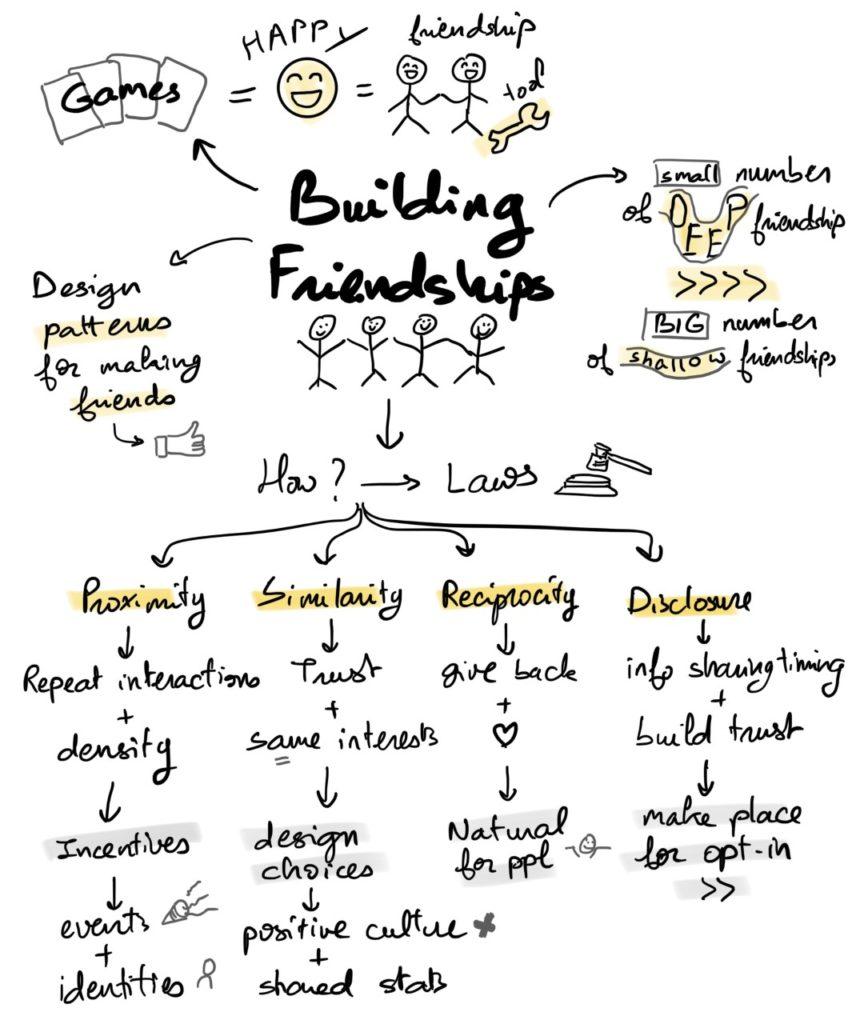 HAPPY
friendship
Games = = tool
Building
Friendships
small number
of DEEP friendship
>>>>
BIG number
of shallow friendships
Design
patterns
for making
friends
How? → Laws
Proximity
Repeat interactions
+
density
Incentives
events
+
identities
Similarity
Trust
+
same interests
design
choices
positive culture
+
shared stats
Reciprocity
give back
+
Natural
for ppl
Disclosure
info sharing timing
+
build trust
make place
for opt-in
>>